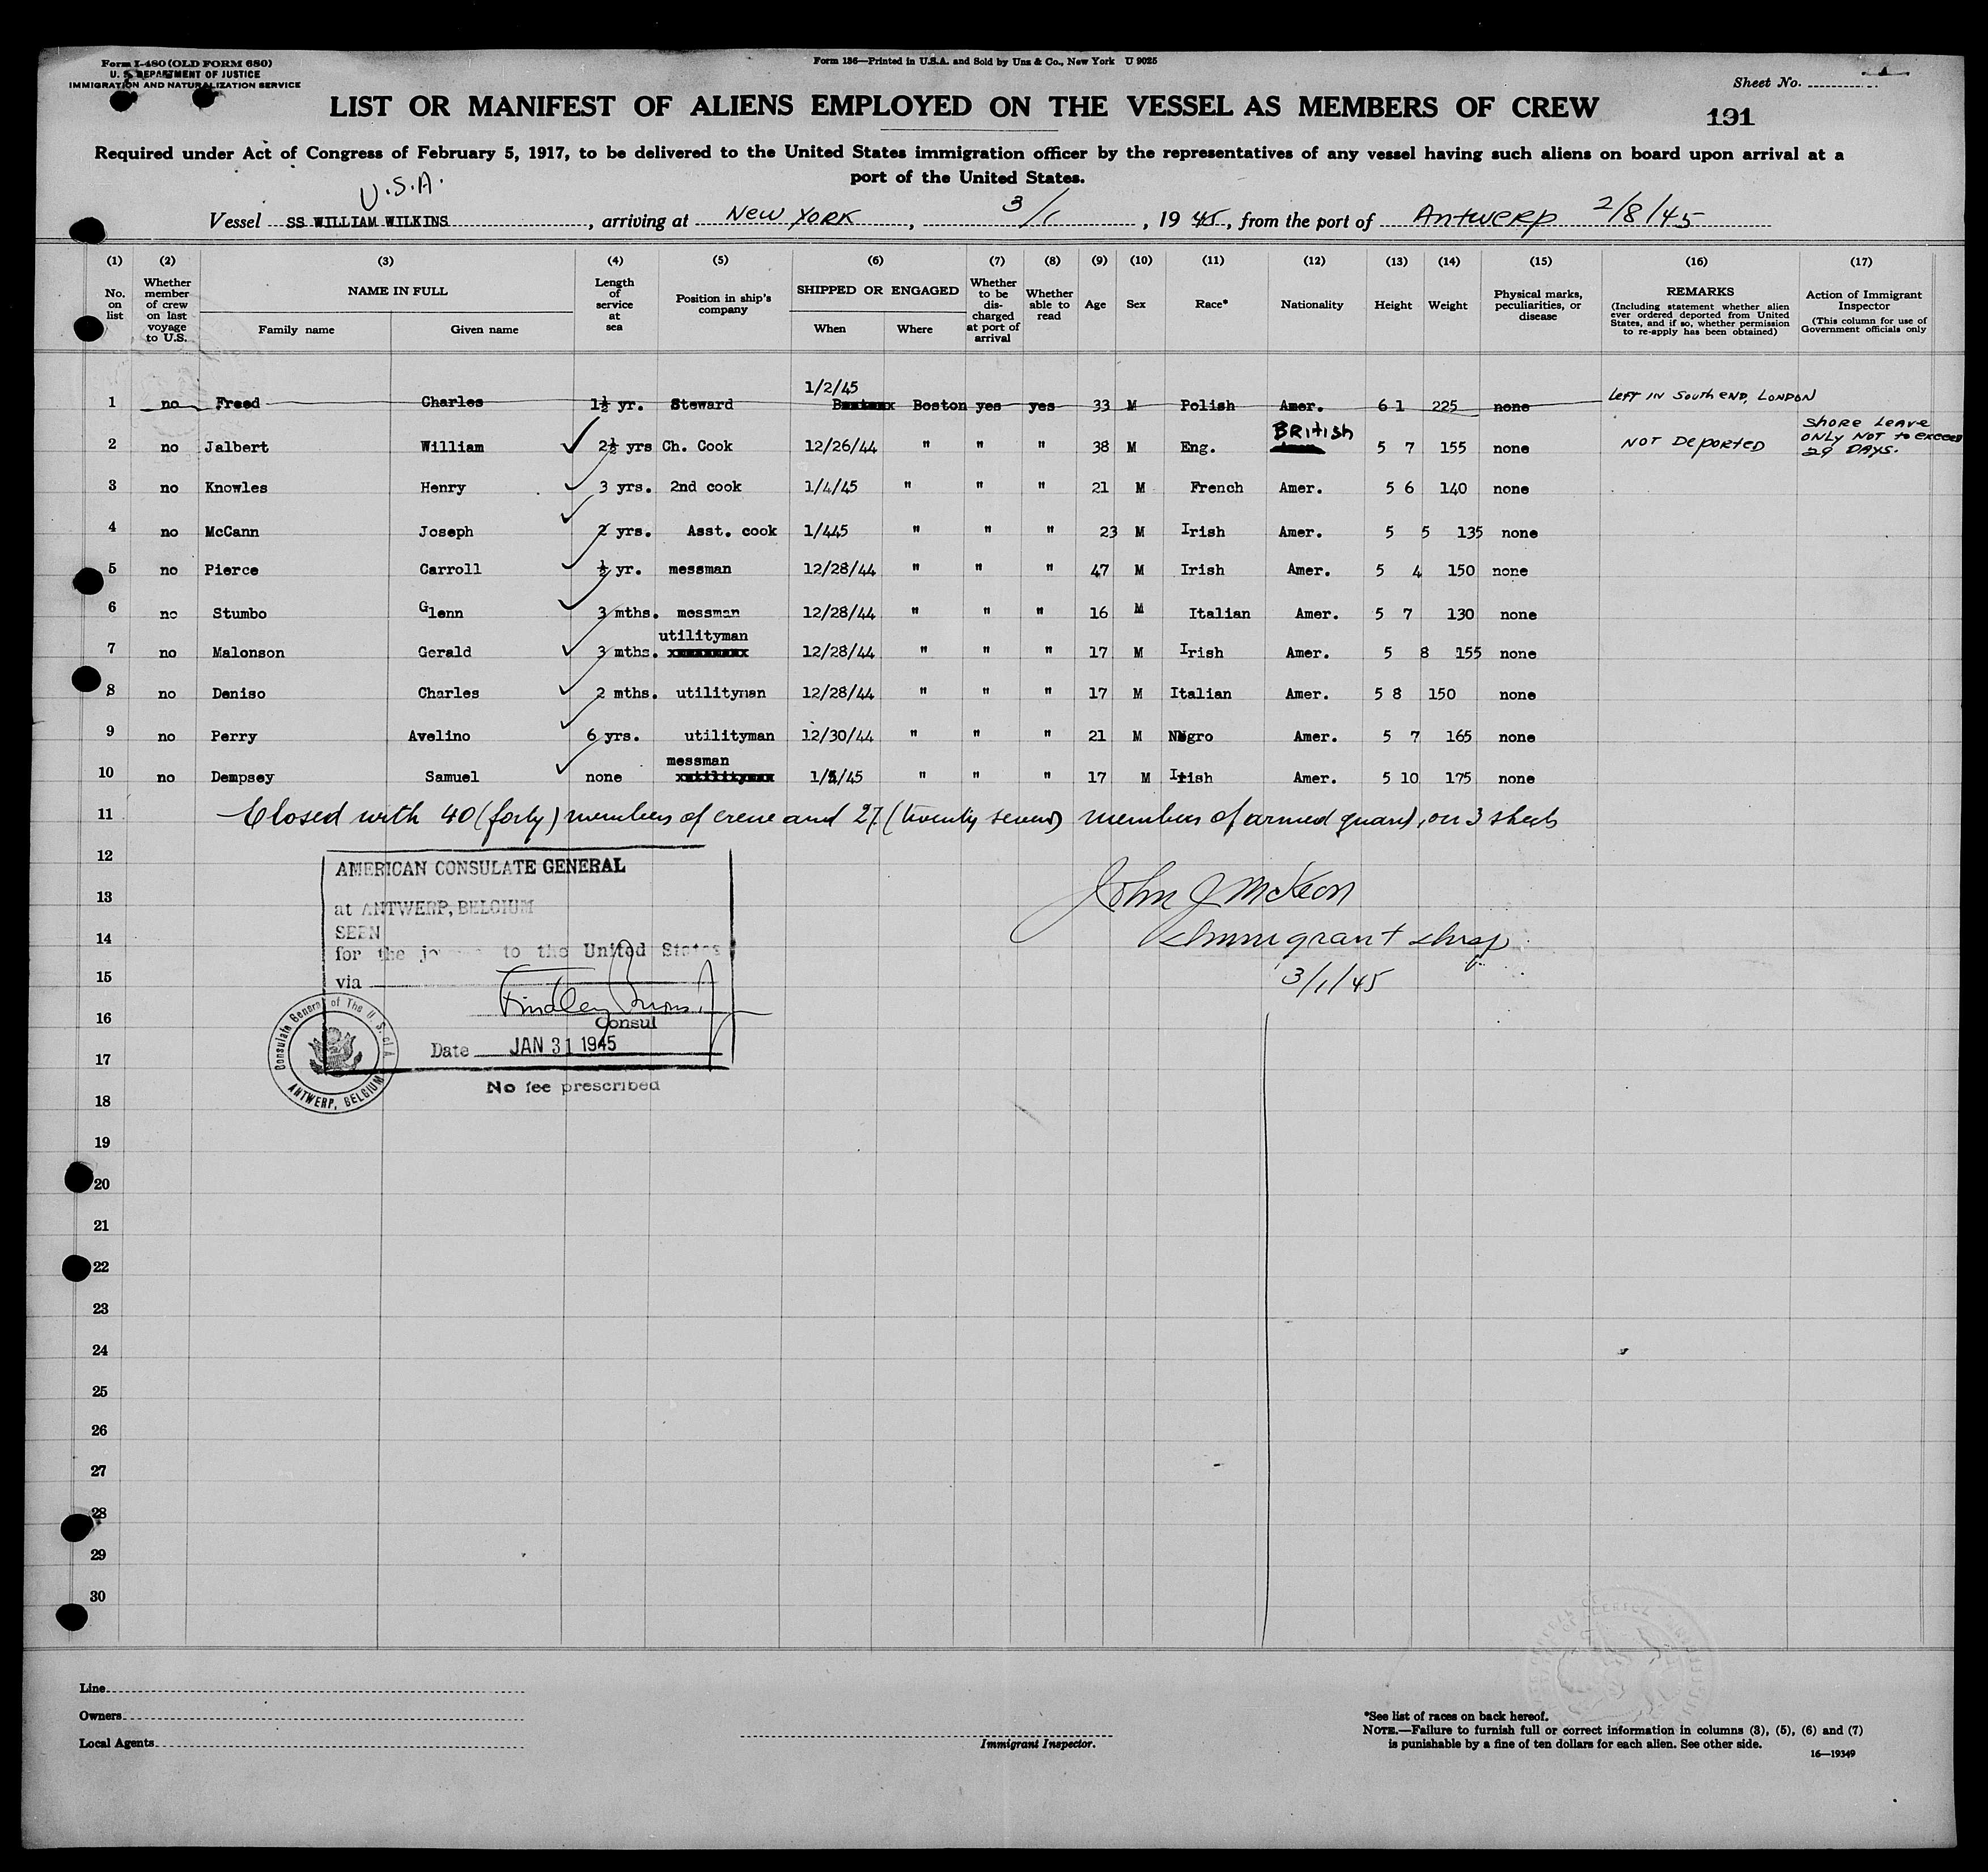 Form I-480 (OLD FORM 680)
U. S. DEPARTMENT OF JUSTICE
IMMIGRATION AND NATURALIZATION SERVICE
Form 186—Printed in U.S.A. and Sold by Unz & Co., New York U 9025
Sheet No.
LIST OR MANIFEST OF ALIENS EMPLOYED ON THE VESSEL AS MEMBERS OF CREW
191
Required under Act of Congress of February 5, 1917, to be delivered to the United States immigration officer by the representatives of any vessel having such aliens on board upon arrival at a
port of the United States.
U.S.A.
Vessel SS WILLIAM WILKINS, arriving at New York, 3/1, 1945, from the port of Antwerp 2/8/45
(1) (2) (3) (4) (5) (6) (7) (8) (9) (10) (11) (12) (13) (14) (15) (16) (17)
No. on list
Whether member of crew on last voyage to U.S.
NAME IN FULL
Family name Given name
Length of service at sea
Position in ship's company
SHIPPED OR ENGAGED
When Where
Whether to be discharged at port of arrival
Whether able to read
Age
Sex
Race*
Nationality
Height
Weight
Physical marks, peculiarities, or disease
REMARKS
(Including statement whether alien ever ordered deported from United States, and if so, whether permission to re-apply has been obtained)
Action of Immigrant Inspector
(This column for use of Government officials only
1 no Freed Charles 1½ yr. Steward 1/2/45 Boston yes yes 33 M Polish Amer. 6 1 225 none Left in South End, London
2 no Jalbert William 2½ yrs Ch. Cook 12/26/44 " " " 38 M Eng. British 5 7 155 none Not Deported Shore Leave only not to exceed 29 days.
3 no Knowles Henry 3 yrs. 2nd cook 1/4/45 " " " 21 M French Amer. 5 6 140 none
4 no McCann Joseph 2 yrs. Asst. cook 1/445 " " " 23 M Irish Amer. 5 5 135 none
5 no Pierce Carroll ½ yr. messman 12/28/44 " " " 47 M Irish Amer. 5 4 150 none
6 no Stumbo Glenn 3 mths. messman 12/28/44 " " " 16 M Italian Amer. 5 7 130 none
7 no Malonson Gerald 3 mths. utilityman 12/28/44 " " " 17 M Irish Amer. 5 8 155 none
8 no Deniso Charles 2 mths. utilityman 12/28/44 " " " 17 M Italian Amer. 5 8 150 none
9 no Perry Avelino 6 yrs. utilityman 12/30/44 " " " 21 M Negro Amer. 5 7 165 none
10 no Dempsey Samuel none messman 1/ /45 " " " 17 M Irish Amer. 5 10 175 none
11 Closed with 40 (forty) members of crew and 27 (twenty seven) members of armed guard, on 3 sheets
12
13
14
15
16
17
18
19
20
21
22
23
24
25
26
27
28
29
30
AMERICAN CONSULATE GENERAL
at ANTWERP, BELGIUM
SEEN
for the journey to the United States
via
Consul
Date JAN 31 1945
No fee prescribed
Consulate General of The U. S. of A.
ANTWERP, BELGIUM
John J McKeon
Immigrant Insp
3/1/45
Line
Owners
Local Agents
Immigrant Inspector.
*See list of races on back hereof.
NOTE.—Failure to furnish full or correct information in columns (3), (5), (6) and (7)
is punishable by a fine of ten dollars for each alien. See other side.
16—19349